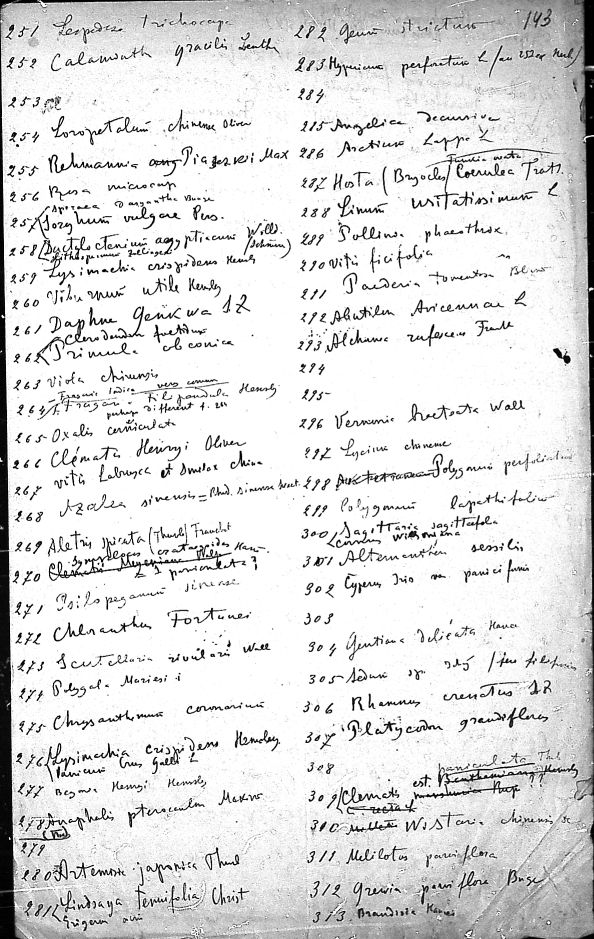 143
251 Lespedeza trichocarpa
252 Calaminth gracilis Benth
253
254 Loropetalum chinense Oliver
255 Rehmannia Piasezkii Max
256 Rosa microcarp
Spiraea Bunge
257 Sorghum vulgare Pers.
258 Dactyloctenium aegyptiacum Willd.
Lithospermum Zollingeri
259 Lysimachia crispidens Hemsly
260 Viburnum utile Hemsley
261 Daphne Genkwa SZ
Clerodendron foetidum
262 Primula obconica
263 Viola chinensis
Fragaria Indica
264 Fragaria filipendula Hemsly
perhaps different f. 211
265 Oxalis corniculata
266 Clematis Henryi Oliver
267 vitis Labrusca et Smilax china
268 Azalea sinensis = Rhod. sinense Sweet
269 Aletris spicata (Thunb) Franchet
Symplocos crataegoides Ham
270 Clematis Meyeniana Walp
= S paniculata ?
271 Psilopeganum sinense
272 Chloranthus Fortunei
273 Scutellaria rivularis Wall
274 Polygala Mariesii
275 Chrysanthemum coronarium
276 Lysimachia crispidens Hemsley
Panicum Crus Galli L
277 Henryi Hemsly
278 Anaphalis pterocaulon Maxim
279
280 Artemisia japonica Thunb
281 Lindsaya tenuifolia Christ
Erigeron
282 Geum strictum
283 Hypericum perforatum L (au 252 ex Herb)
284
285 Angelica decursiva
286 Arctium Lappa L
287 Hosta (Bryocles) Coerulea Tratt.
Funkia ovata
288 Linum usitatissimum L
289 Pollinia phaeothrix
290 vitis ficifolia
291 Paederia tomentosa Blume
292 Abutilon Avicennae L
293 Alchornea rufescens Fran
294
295
296 Vernonia bracteata Wall
297 Lycium chinense
298 Polygonum perfoliatum
299 Polygonum lapathifolium
300 Sagittaria sagittifolia
Cornus Wilsoniana
301 Alternanthera sessilis
302 Cyperus Iria var paniciformis
303
304 Gentiana delicata Hance
305 Sedum sp
306 Rhamnus crenatus SZ
307 Platycodon grandiflorus
308
paniculata Thunb
309 Clematis est. Benthamiana Hemsly
recta L
310 Wistaria chinensis DC
311 Melilotus parviflora
312 Grewia parviflora Bunge
313 Brandisia Hancei